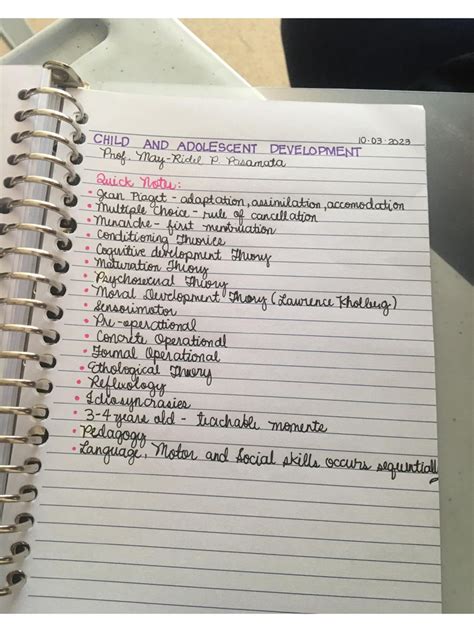 10-03-2023
CHILD AND ADOLESCENT DEVELOPMENT
Prof. May-Ridel P. Posamata
Quick Notes:
• Jean Piaget - adaptation, assimilation, accomodation
• Multiple Choice - rule of cancellation
• Menarche - first mentruation
• Conditioning Theories
• Cognitive development Theory
• Maturation Theory
• Psychosexual Theory
• Moral Development Theory (Lawrence Kholburg)
• Sensorimotor
• Pre-operational
• Concrete Operational
• Formal Operational
• Ethological Theory
• Reflexology
• Idiosyncrasies
• 3-4 years old - teachable moments
• Pedagogy
• Language, Motor and Social skills occurs sequentially